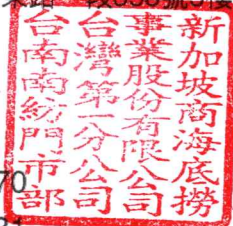 新加坡商海底撈
事業股份有限公司
台灣第一分公司
台南南紡門市部
70